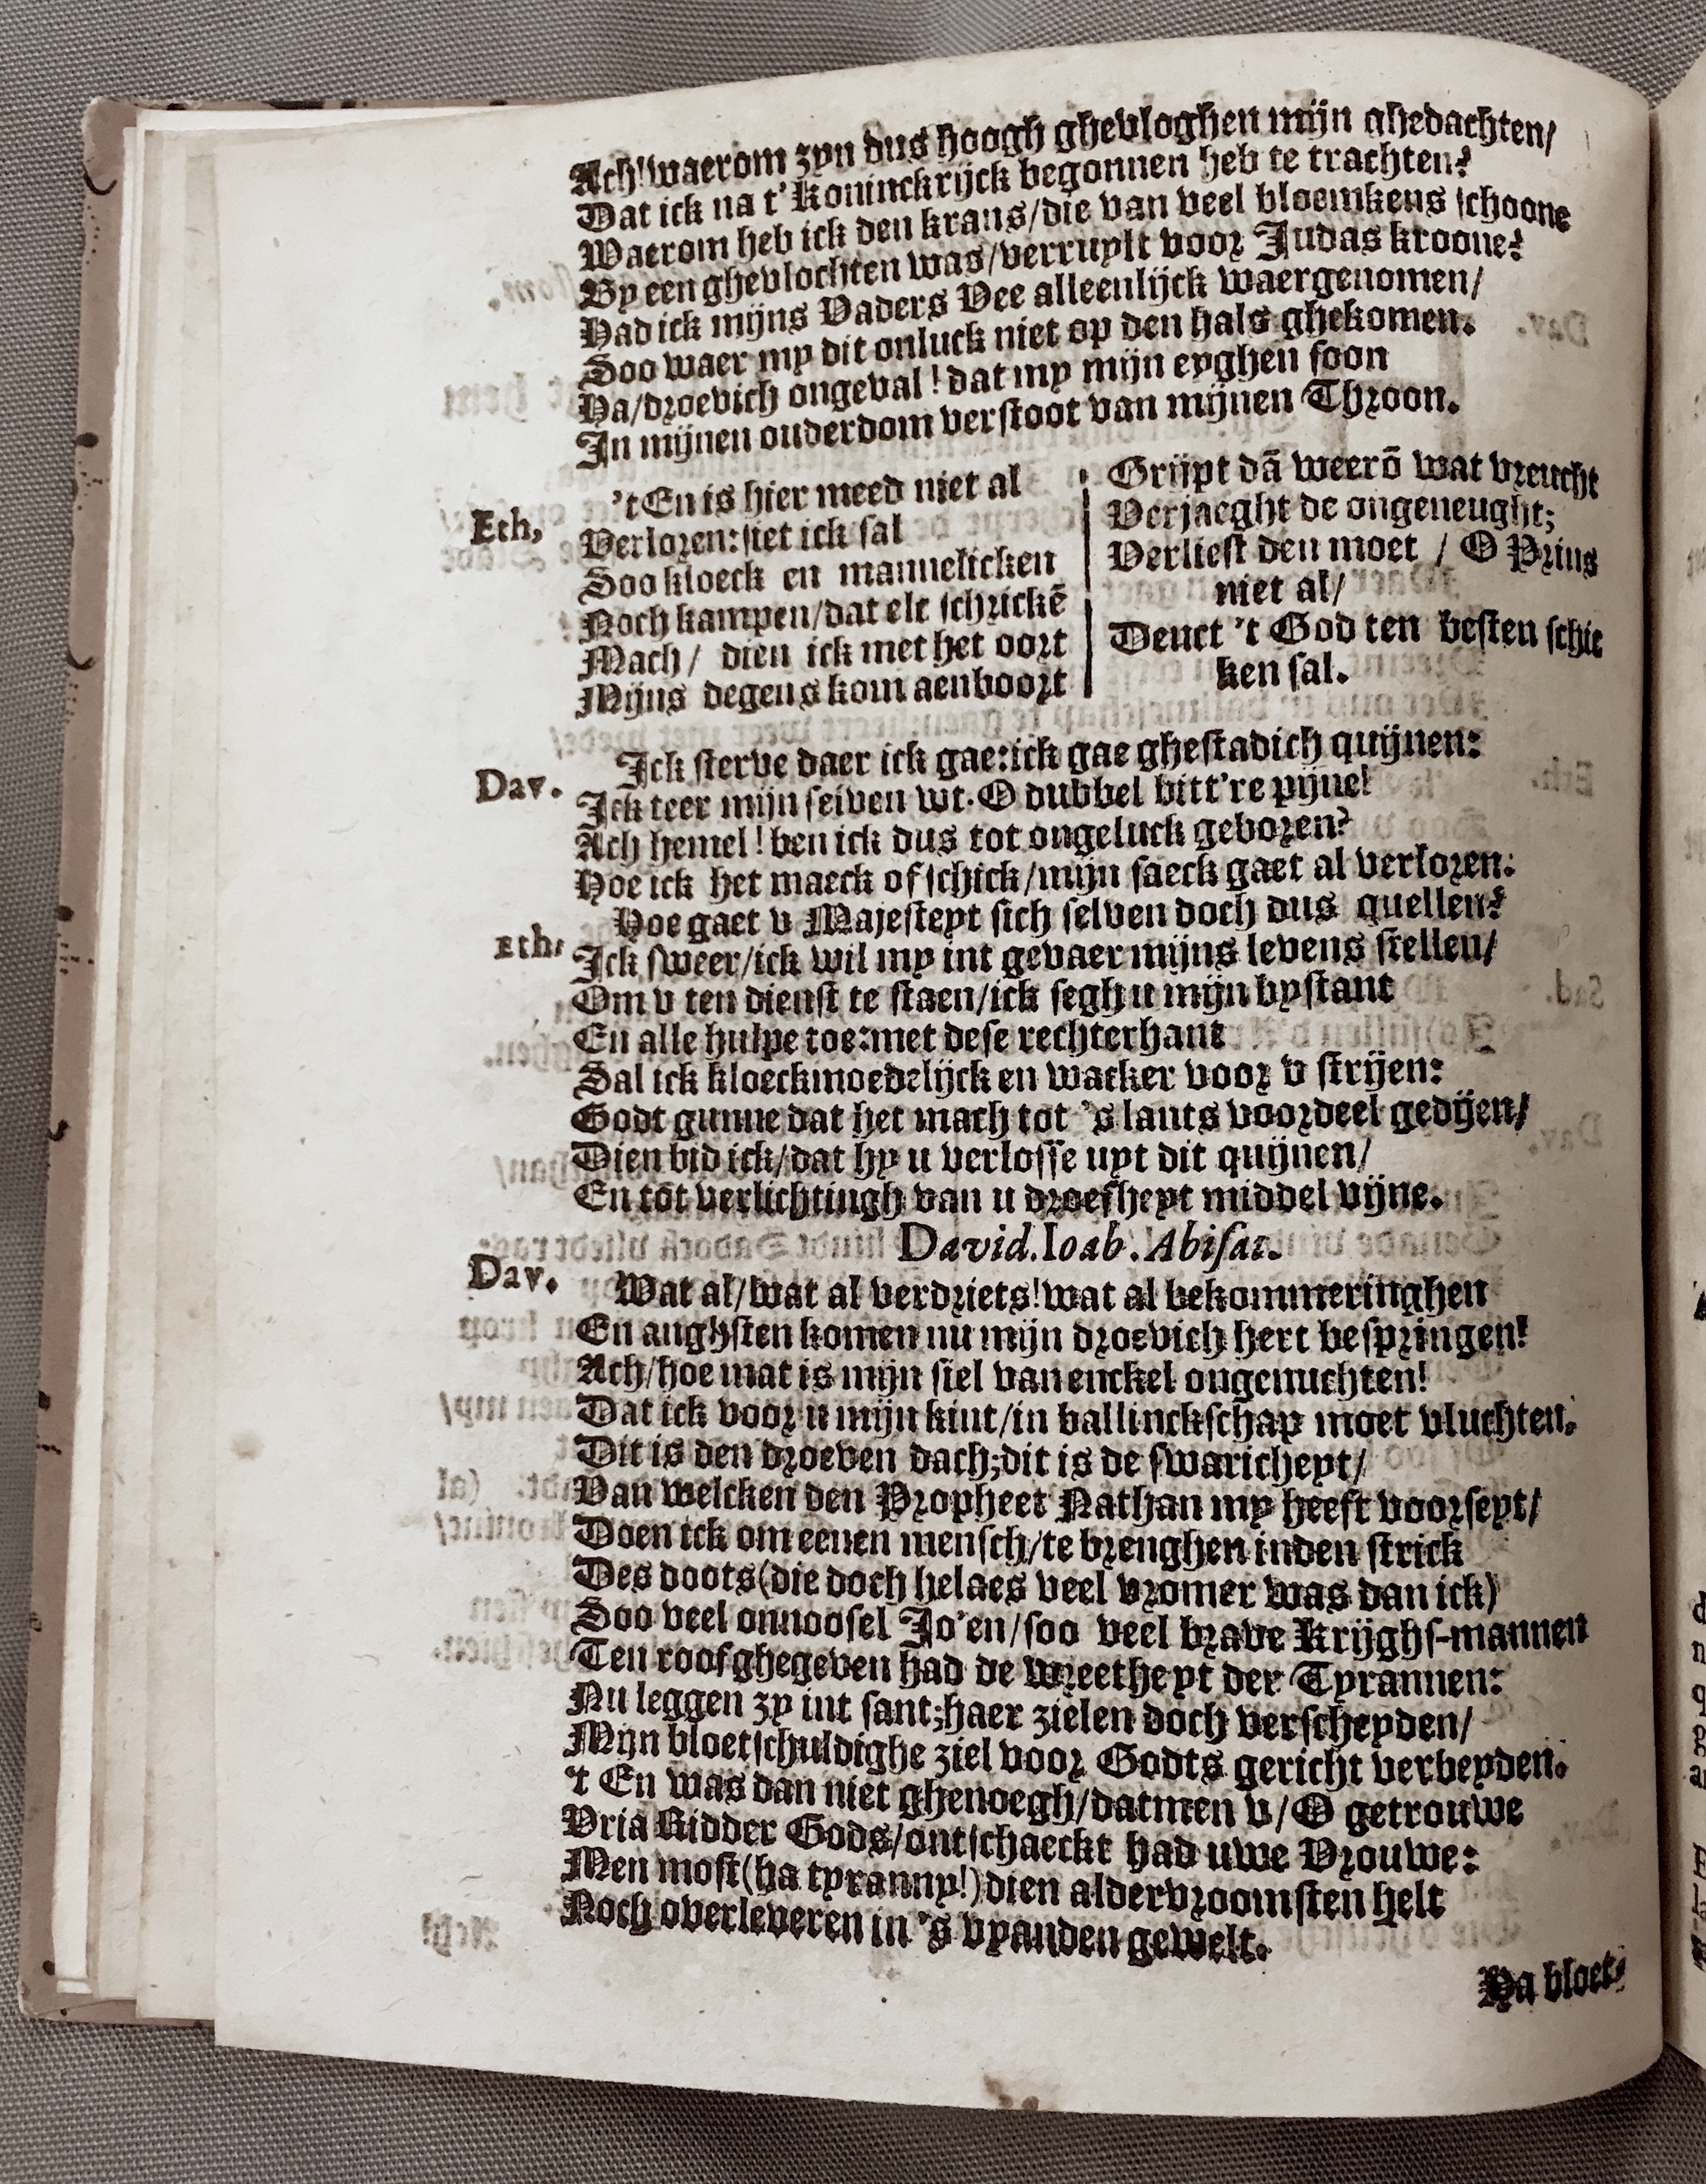 Ach! waerom zyn dus hoogh ghevloghen mijn ghedachten/
Dat ick na t'Koninckrijck begonnen heb te trachten?
Waerom heb ick den krans/die van veel bloemkens schoone
By een ghevlochten was/verruylt voor Judas kroone?
Had ick mijns Vaders Vee alleenlijck waergenomen/
Soo waer my dit onluck niet op den hals ghekomen.
Ha/droevich ongeval! dat my mijn eyghen soon
In mijnen ouderdom verstoot van mijnen Throon.
Eth, 't En is hier meed niet al
Verloren: siet ick sal
Soo kloeck en mannelicken
Noch kampen/dat elc schrickē
Mach/ dien ick met het oort
Mijns degens kom aenboort
Grijpt dā weerō wat vreucht
Verjaeght de ongeneught;
Verliest den moet / O Prins
niet al/
Denct 't God ten besten schic
ken sal.
Dav. Ick sterve daer ick gae: ick gae ghestadich quijnen:
Ick teer mijn selven wt. O dubbel bitt're pijne!
Ach hemel! ben ick dus tot ongeluck geboren?
Hoe ick het maeck of schick/mijn saeck gaet al verloren.
Eth, Hoe gaet v Majesteyt sich selven doch dus quellen?
Ick sweer/ick wil my int gevaer mijns levens stellen/
Om v ten dienst te staen/ick segh u mijn bystant
En alle hulpe toe: met dese rechterhant
Sal ick kloeckmoedelijck en wacker voor v strijen:
Godt gunne dat het mach tot 's lants voordeel gedijen/
Dien bid ick/dat hy u verlosse uyt dit quijnen/
En tot verlichtingh van u droefheyt middel vijne.
David. Ioab. Abisai.
Dav. Wat al/wat al verdriets! wat al bekommeringhen
En anghsten komen nu mijn droevich hert bespringen!
Ach/hoe mat is mijn siel van enckel ongenuchten!
Dat ick voor u mijn kint/in ballinckschap moet vluchten.
Dit is den droeven dach; dit is de swaricheyt/
Van welcken den Propheet Nathan my heeft voorseyt/
Doen ick om eenen mensch/te brenghen inden strick
Des doots (die doch helaes veel vromer was dan ick)
Soo veel onnoosel Jo'en/soo veel brave Krijghs-mannen
Ten roof ghegeven had de wreetheyt der Tyrannen:
Nu leggen zy int sant; haer zielen doch verscheyden/
Mijn bloetschuldighe ziel voor Godts gericht verbeyden.
't En was dan niet ghenoegh/datmen v/O getrouwe
Vria Ridder Gods/ontschaeckt had uwe Vrouwe:
Men most (ha tyranny!) dien aldervroomsten helt
Noch overleveren in 's vyanden gewelt.
Ha bloet-